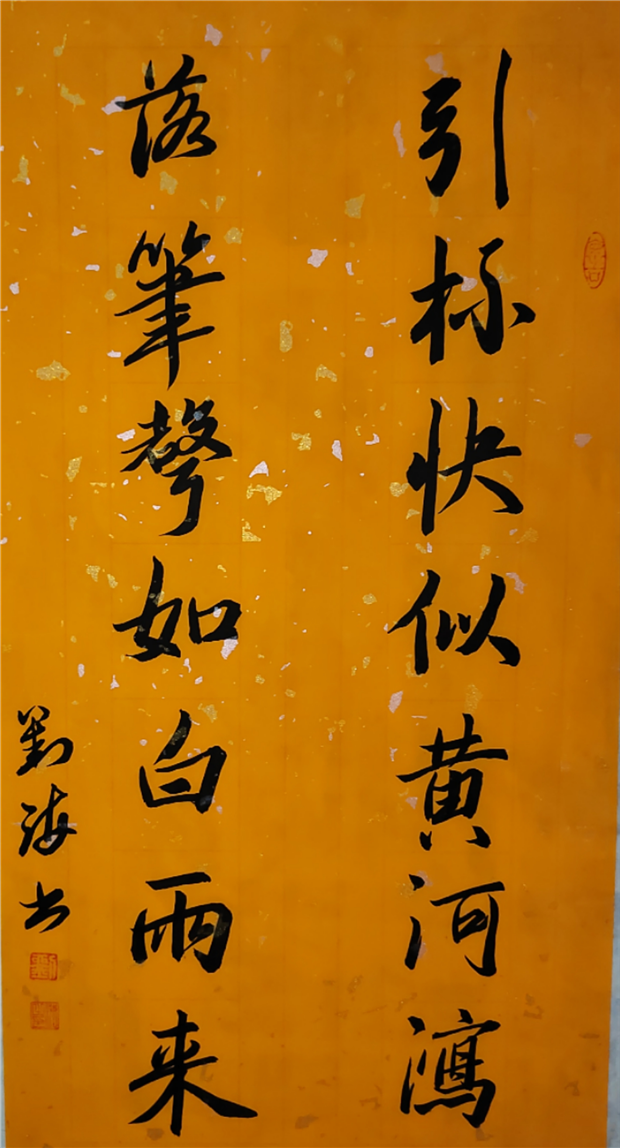 引杯快似黄河瀉
落筆聲如白雨来
劉海書